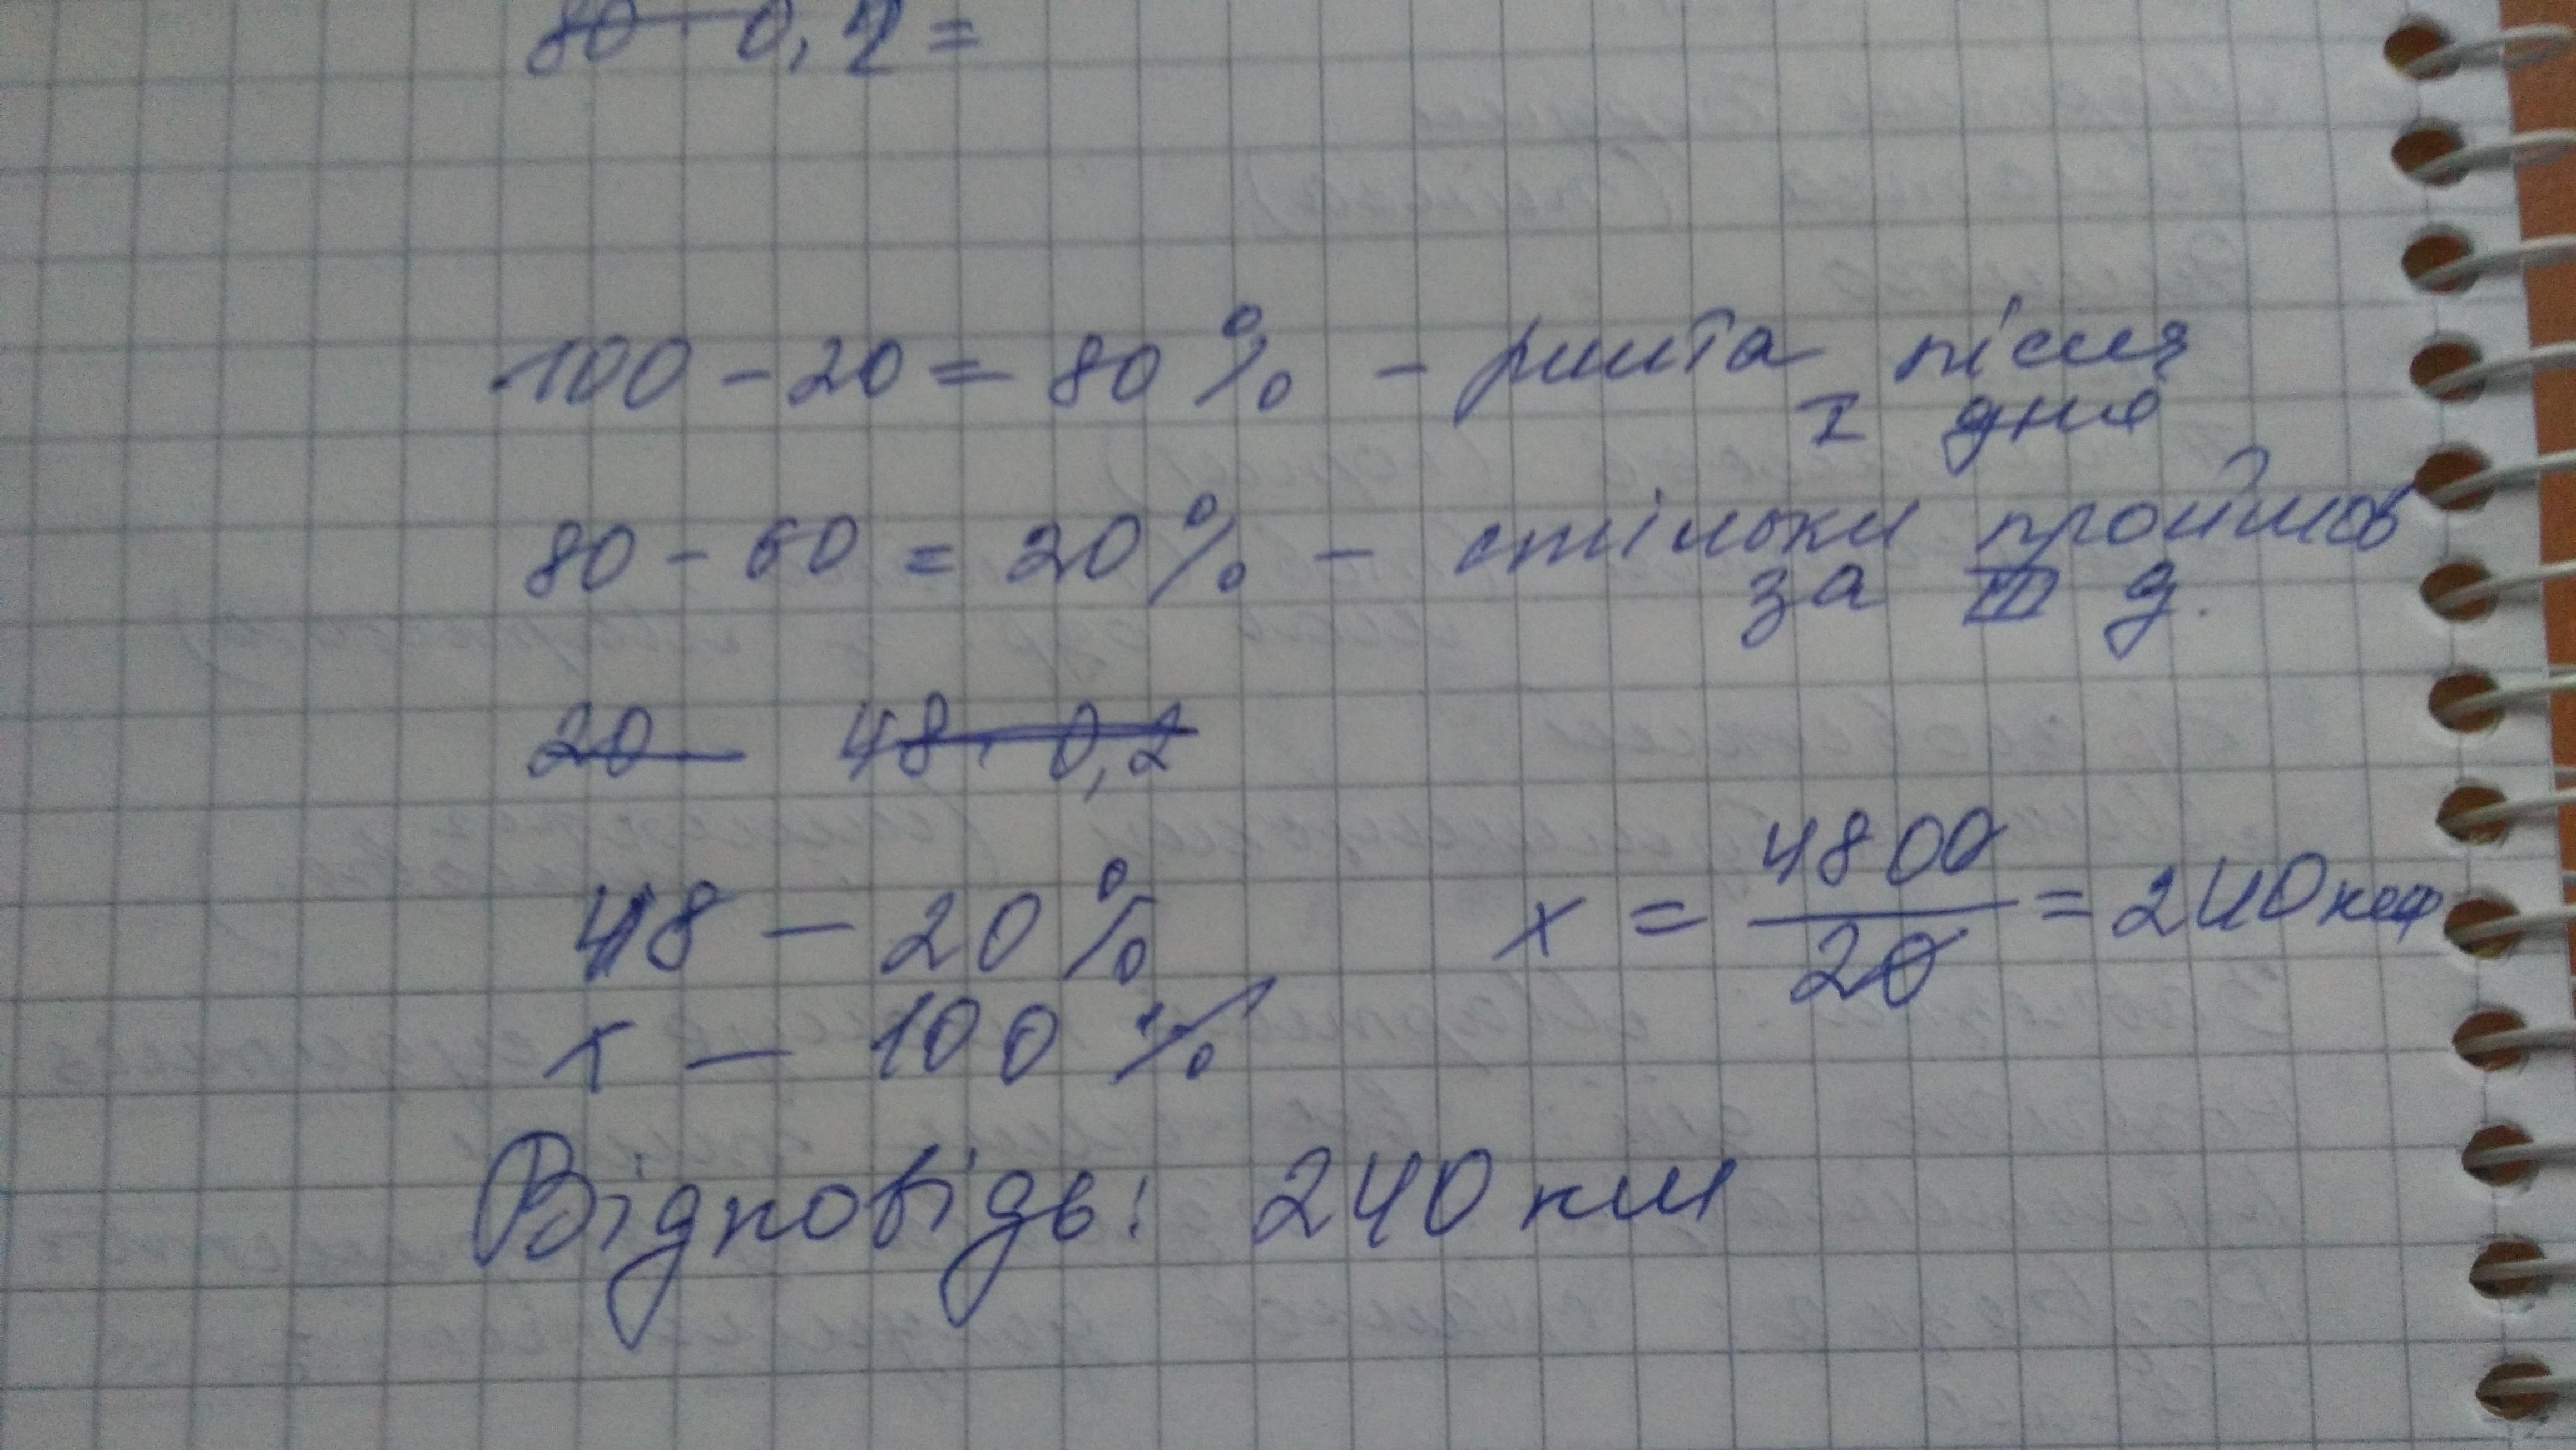 80 · 0,2 =
100 - 20 = 80 % - решта після
I дня
80 - 60 = 20 % - стільки пройшов
за III д.
20 48 · 0,2
48 - 20 %
x = 4800 / 20 = 240 км
x - 100 %
Відповідь: 240 км